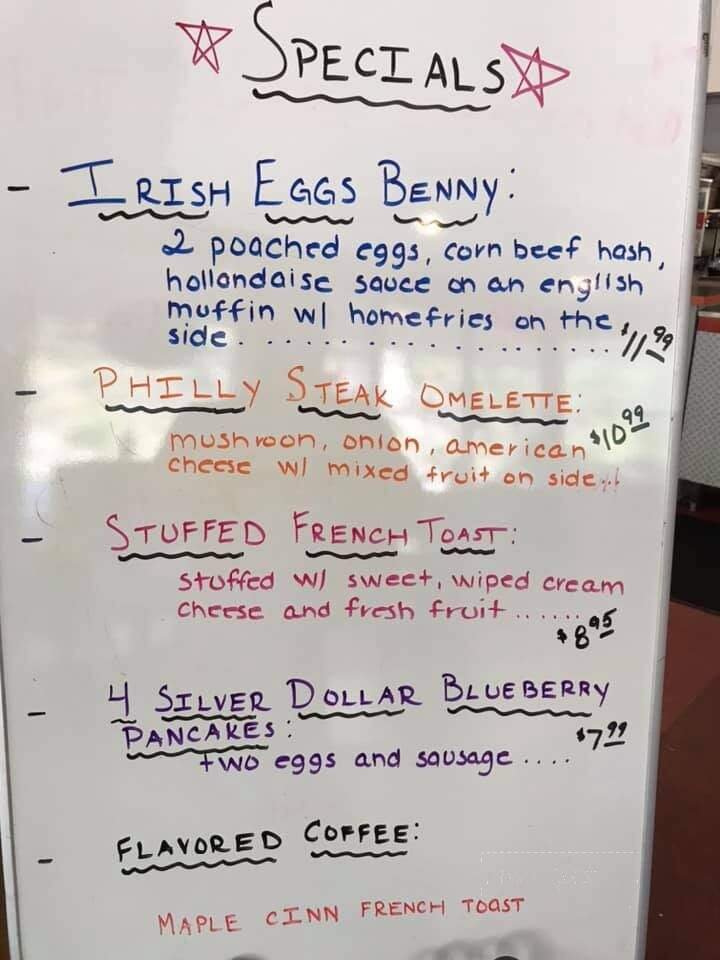 SPECIALS
- IRISH EGGS BENNY:
2 poached eggs, corn beef hash,
hollandaise sauce on an english
muffin w/ homefries on the
side. . . . . . . . . . . . . . . . . $11.99
- PHILLY STEAK OMELETTE:
mushroon, onion, american $10.99
cheese w/ mixed fruit on side..!
- STUFFED FRENCH TOAST:
stuffed w/ sweet, wiped cream
cheese and fresh fruit.......
$8.95
- 4 SILVER DOLLAR BLUEBERRY
PANCAKES: $7.99
two eggs and sausage ....
- FLAVORED COFFEE:
MAPLE CINN FRENCH TOAST